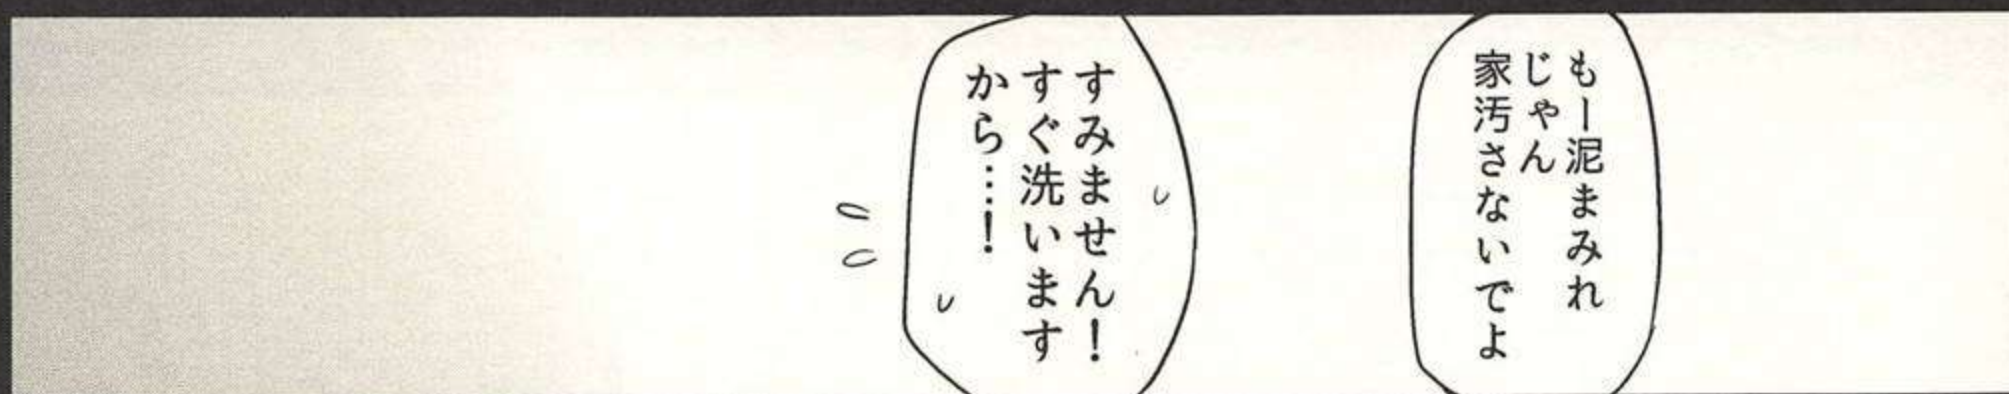 もー泥まみれ
じゃん
家汚さないでよ
すみません！
すぐ洗います
から…！